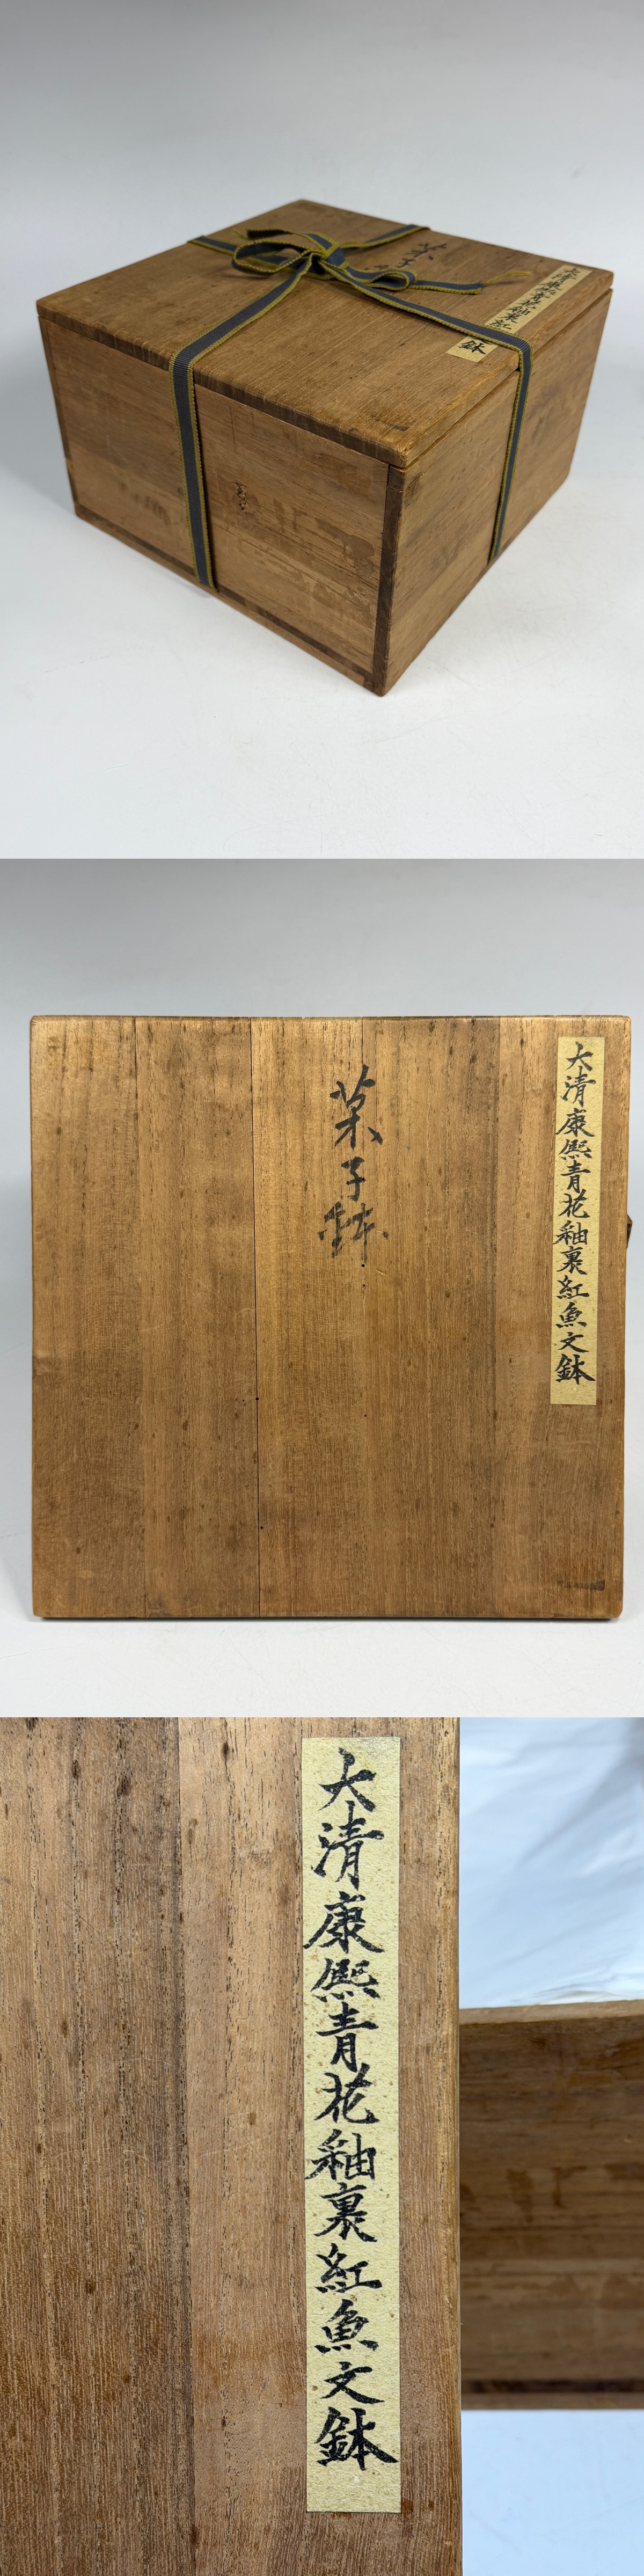 菓子
大清康熙青花釉裏紅
鉢
大清康熙青花釉裏紅魚文鉢
菓子鉢
大清康熙青花釉裏紅魚文鉢